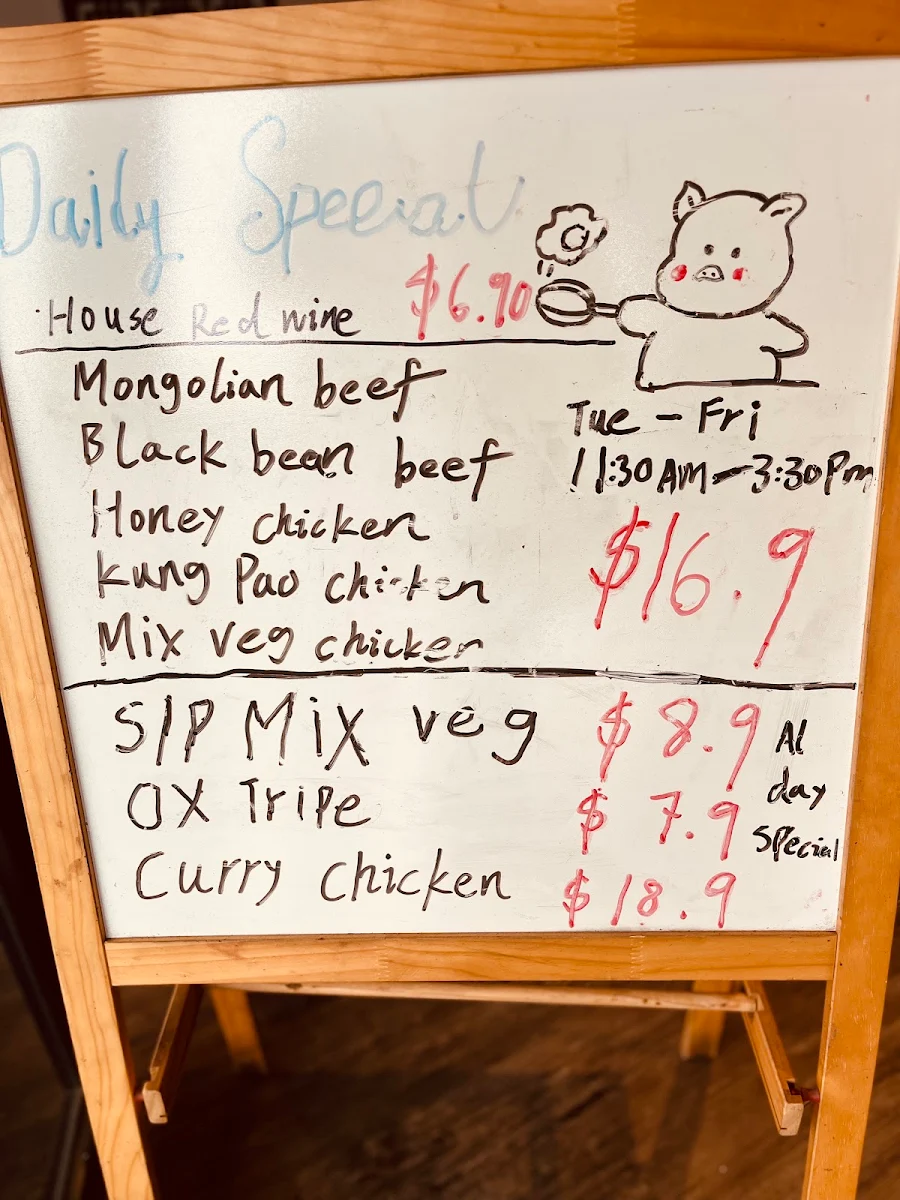 Daily Special
House Red wine $6.90
Mongolian beef
Black bean beef
Honey chicken
Kung Pao chicken
Mix veg chicken
Tue - Fri
11:30AM-3:30Pm
$16.9
S/P Mix veg $8.9
OX Tripe $7.9
Curry chicken $18.9
Al
day
special